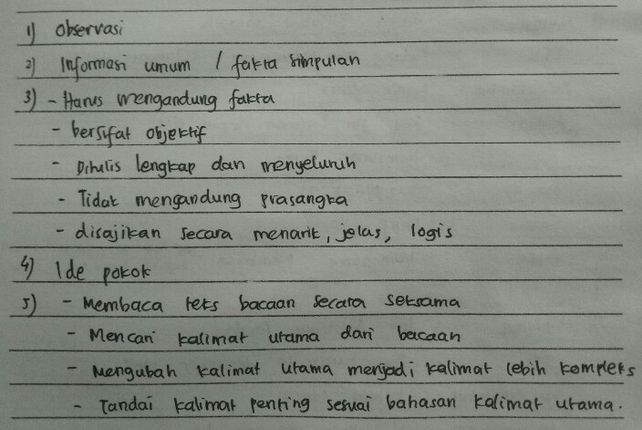 1) Observasi
2) Informasi umum / fakta simpulan
3) - Harus mengandung fakta
- bersifat objektif
- Ditulis lengkap dan menyeluruh
- Tidak mengandung prasangka
- disajikan secara menarik, jelas, logis
4) Ide pokok
5) - Membaca teks bacaan secara seksama
- Mencari kalimat utama dari bacaan
- Mengubah kalimat utama menjadi kalimat lebih kompleks
- Tandai kalimat penting sesuai bahasan kalimat utama.